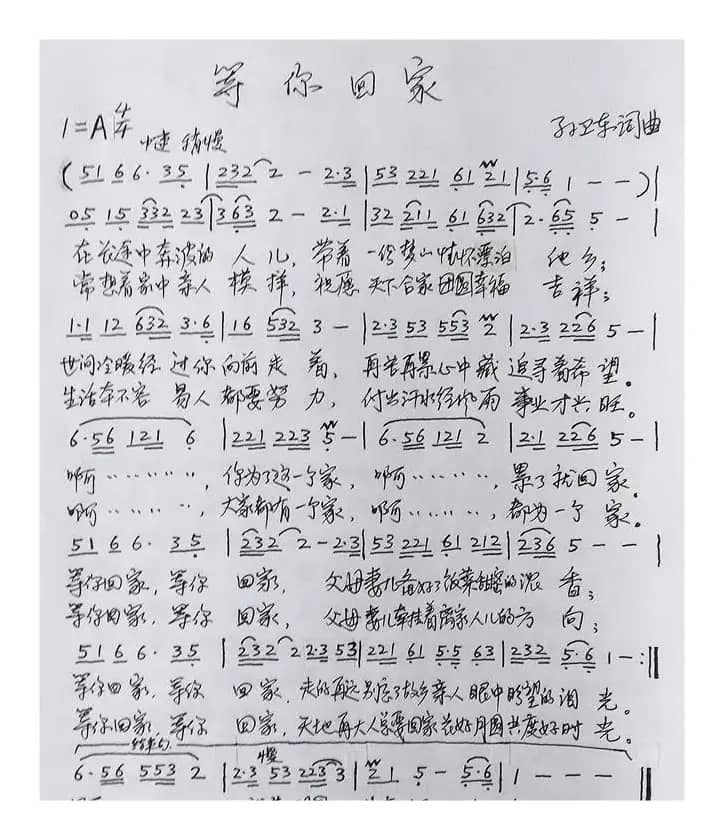 等你回家
1=A 4/4
稍慢 孙卫东词曲
(51 6 6· 35 | 232 2 - 2·3 | 53 221 61 21 | 5·6 1 - - )|
05 15 332 23 | 363 2 - 2·1 | 32 211 61 632 | 2·65 5 - |
在长途中奔波的人儿，带着一份梦山情怀漂泊他乡；
常想着家中亲人模样，祝愿天下合家团圆幸福吉祥；
1·1 12 632 3·6 | 16 532 3 - | 2·3 53 553 2 | 2·3 226 5 - |
世间冷暖经过你向前走着，再苦再累心中藏追寻着希望。
生活本不容易人都要努力，付出汗水经风雨事业才兴旺。
6·56 121 6 | 221 223 5 - | 6·56 121 2 | 2·1 226 5 - |
啊………，你为了这一个家，啊………，累了就回家。
啊………，大家都有一个家，啊………，都为一个家。
51 6 6· 35 | 232 2 - 2·3 | 53 221 61 212 | 236 5 - - |
等你回家，等你回家，父母妻儿备好了饭菜甜蜜的浓香；
等你回家，等你回家，父母妻儿牵挂着离家人儿的方向；
51 6 6· 35 | 232 2 2·3 53 | 221 61 5·5 63 | 232 5·6 1 - :‖
等你回家，等你回家，走的再远别忘了故乡亲人眼中盼望的泪光。
等你回家，等你回家，天地再大人总要回家花好月圆共度好时光。
结束句 慢
6·56 553 2 | 2·3 53 223 3 | 2 1 5 - 5·6 | 1 - - - ‖